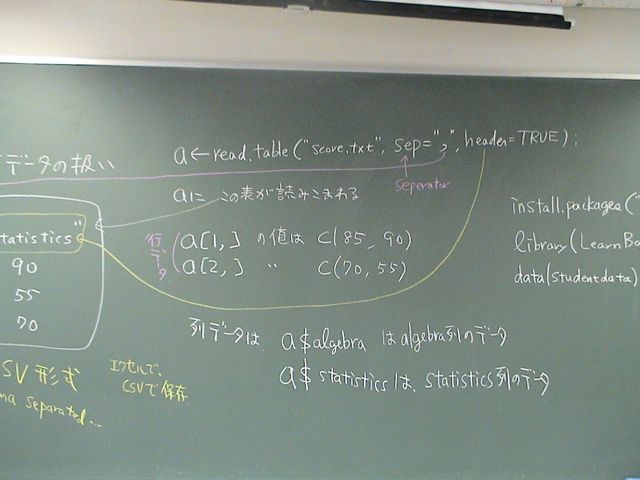 データの扱い
a←read.table("score.txt", sep=",", header=TRUE);
seperator
aに この表が読みこまれる
tatistics"
90
55
70
行データ
a[1,] の値は C(85, 90)
a[2,] 〃 C(70, 55)
列データは a$algebra は algebra列のデータ
a$statisticsは、statistics列のデータ
SV形式
ma separated...
エクセルで、
CSVで保存
install.packages("
library(LearnBa
data(studentdata)